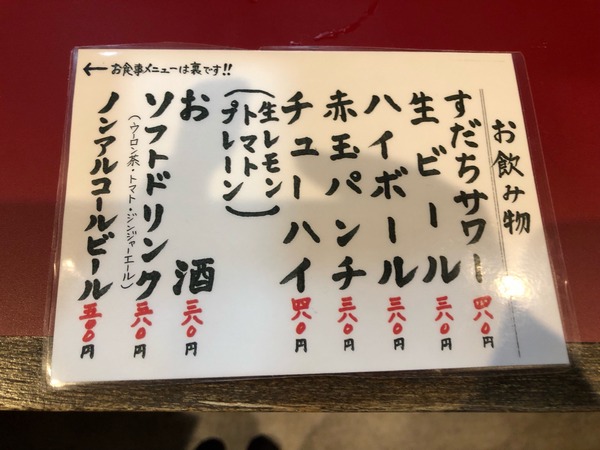 ←お食事メニューは裏です!!
お飲み物
すだちサワー 四八〇円
生ビール 三八〇円
ハイボール 三八〇円
赤玉パンチ 三八〇円
チューハイ 四八〇円
(生レモン
トマト
プレーン)
お酒 三八〇円
ソフトドリンク 三八〇円
(ウーロン茶・トマト・ジンジャーエール)
ノンアルコールビール 五〇〇円